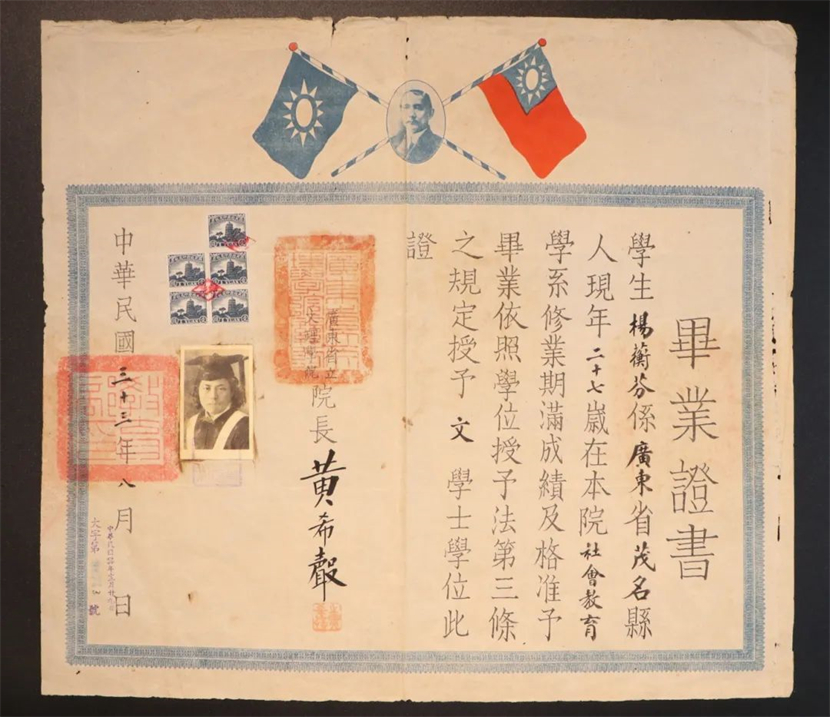 畢業證書
學生楊蘅芬係廣東省茂名縣
人現年二十七歲在本院社會教育
學系修業期滿成績及格准予
畢業依照學位授予法第三條
之規定授予文學士學位此
證
廣東省立
文理學院
院長黃希聲
中華民國三十三年八月日